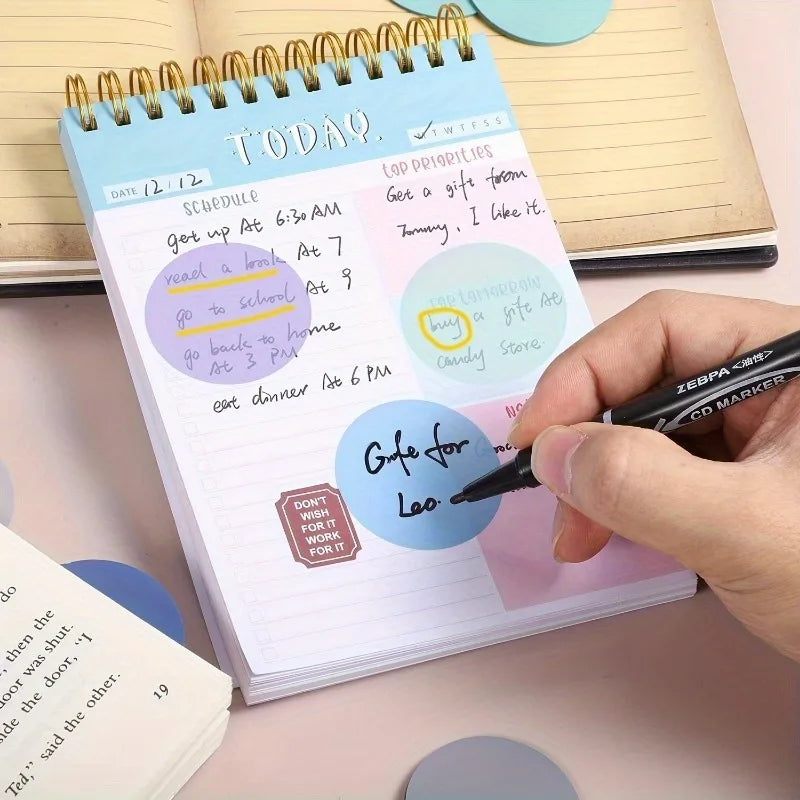 TODAY
T W T F S S
DATE 12 / 12
SCHEDULE
get up At 6:30 AM
read a book At 7
go to school At 9
go back to home
At 3 PM
eat dinner At 6 PM
TOP PRIORITIES
Get a gift from
Tommy, I like it.
TOP TOMORROW
buy a gift At
candy store.
NO
Gife for
Leo.
DON'T
WISH
FOR IT
WORK
FOR IT
ZEBPA <油性>
CD MARKER
do
, then the
door was shut.
side the door, "I
Ted," said the other.
19